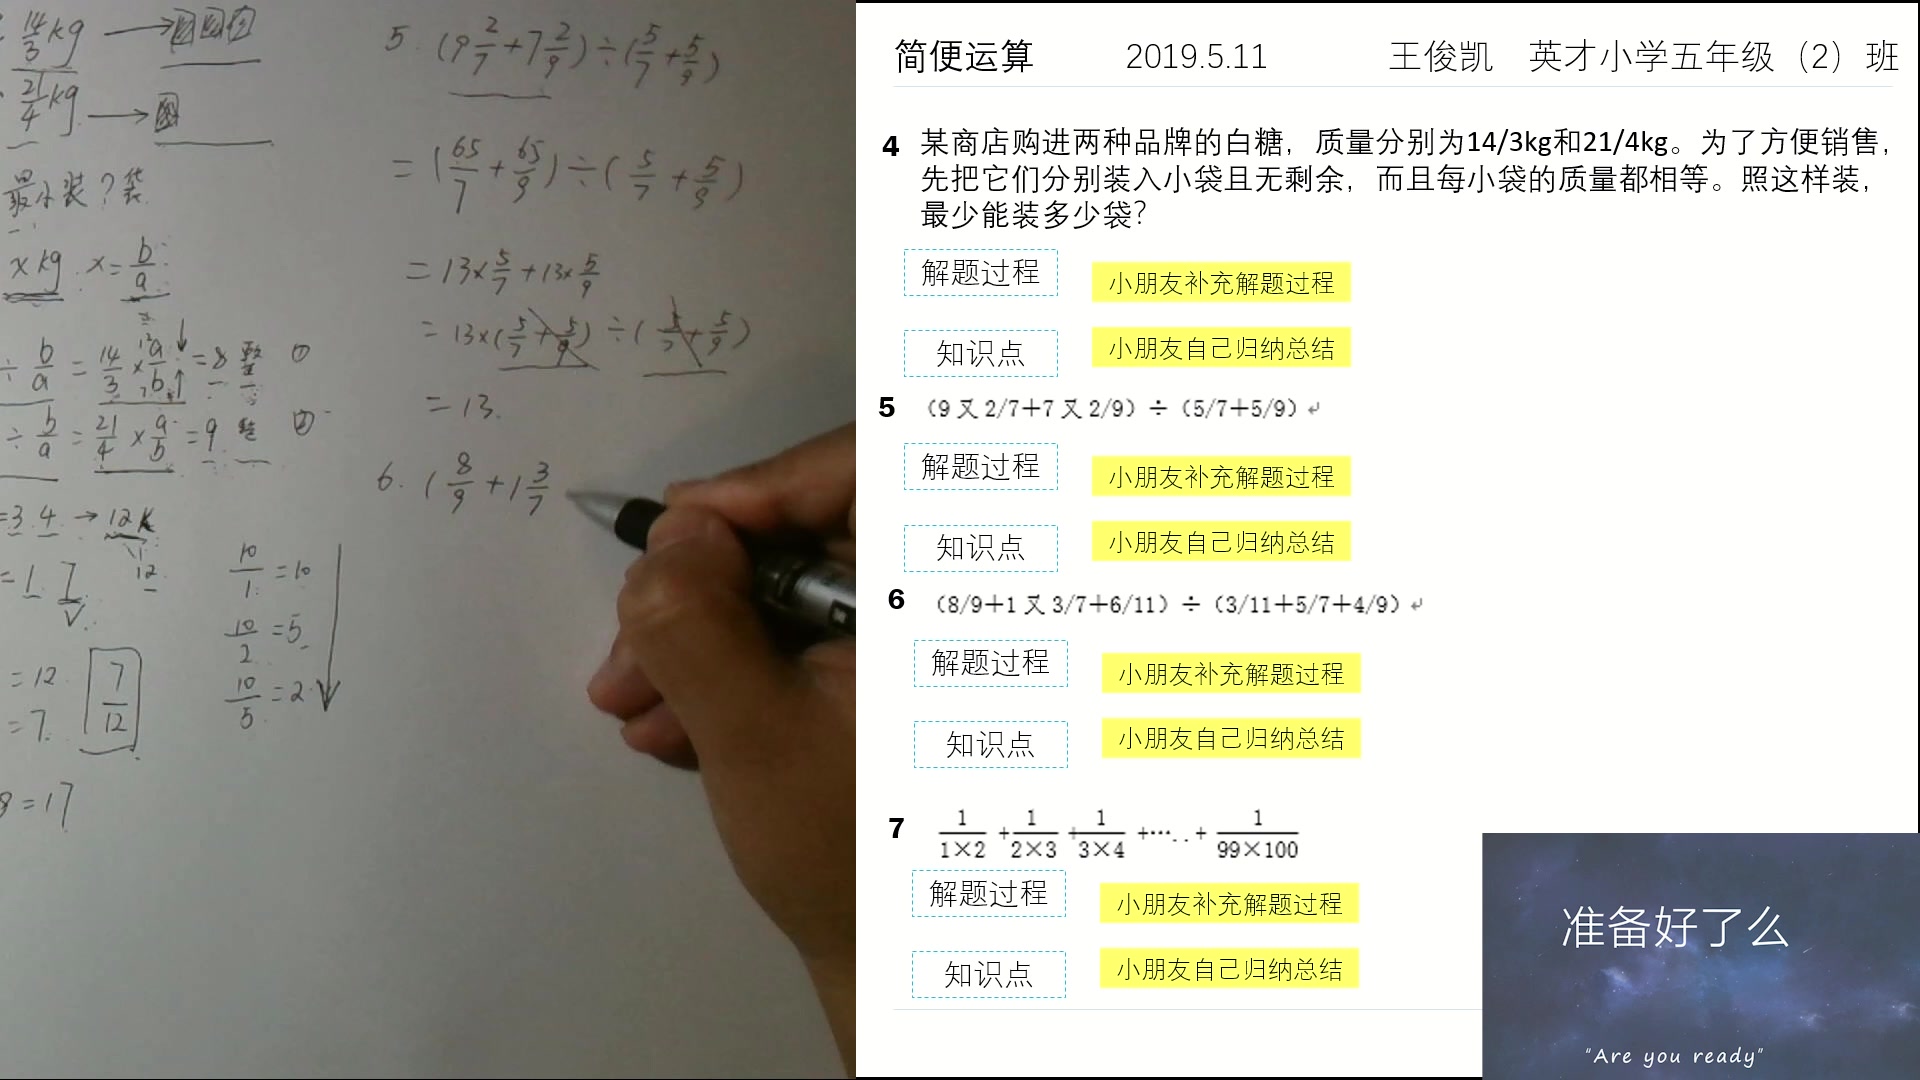 14/3 kg →
21/4 kg →
最小装?袋
x kg x = b/a
÷ b/a = 14/3 × a/b = 8 整 ①
÷ b/a = 21/4 × a/b = 9 ②
= 3.4 → 12
12
= 1.7
= 12
= 7
7/12
8 = 17
10/1 = 10
10/2 = 5
10/5 = 2
5. (9 2/7 + 7 2/9) ÷ (5/7 + 5/9)
= (65/7 + 65/9) ÷ (5/7 + 5/9)
= 13×5/7 + 13×5/9
= 13×(5/7 + 5/9) ÷ (5/7 + 5/9)
= 13.
6. (8/9 + 1 3/7
简便运算 2019.5.11 王俊凯 英才小学五年级（2）班
4 某商店购进两种品牌的白糖，质量分别为14/3kg和21/4kg。为了方便销售，
先把它们分别装入小袋且无剩余，而且每小袋的质量都相等。照这样装，
最少能装多少袋？
解题过程 小朋友补充解题过程
知识点 小朋友自己归纳总结
5 （9 又 2/7＋7 又 2/9）÷（5/7＋5/9）
解题过程 小朋友补充解题过程
知识点 小朋友自己归纳总结
6 （8/9＋1 又 3/7＋6/11）÷（3/11＋5/7＋4/9）
解题过程 小朋友补充解题过程
知识点 小朋友自己归纳总结
7 1/1×2 + 1/2×3 + 1/3×4 +…..+ 1/99×100
解题过程 小朋友补充解题过程
知识点 小朋友自己归纳总结
准备好了么
"Are you ready"